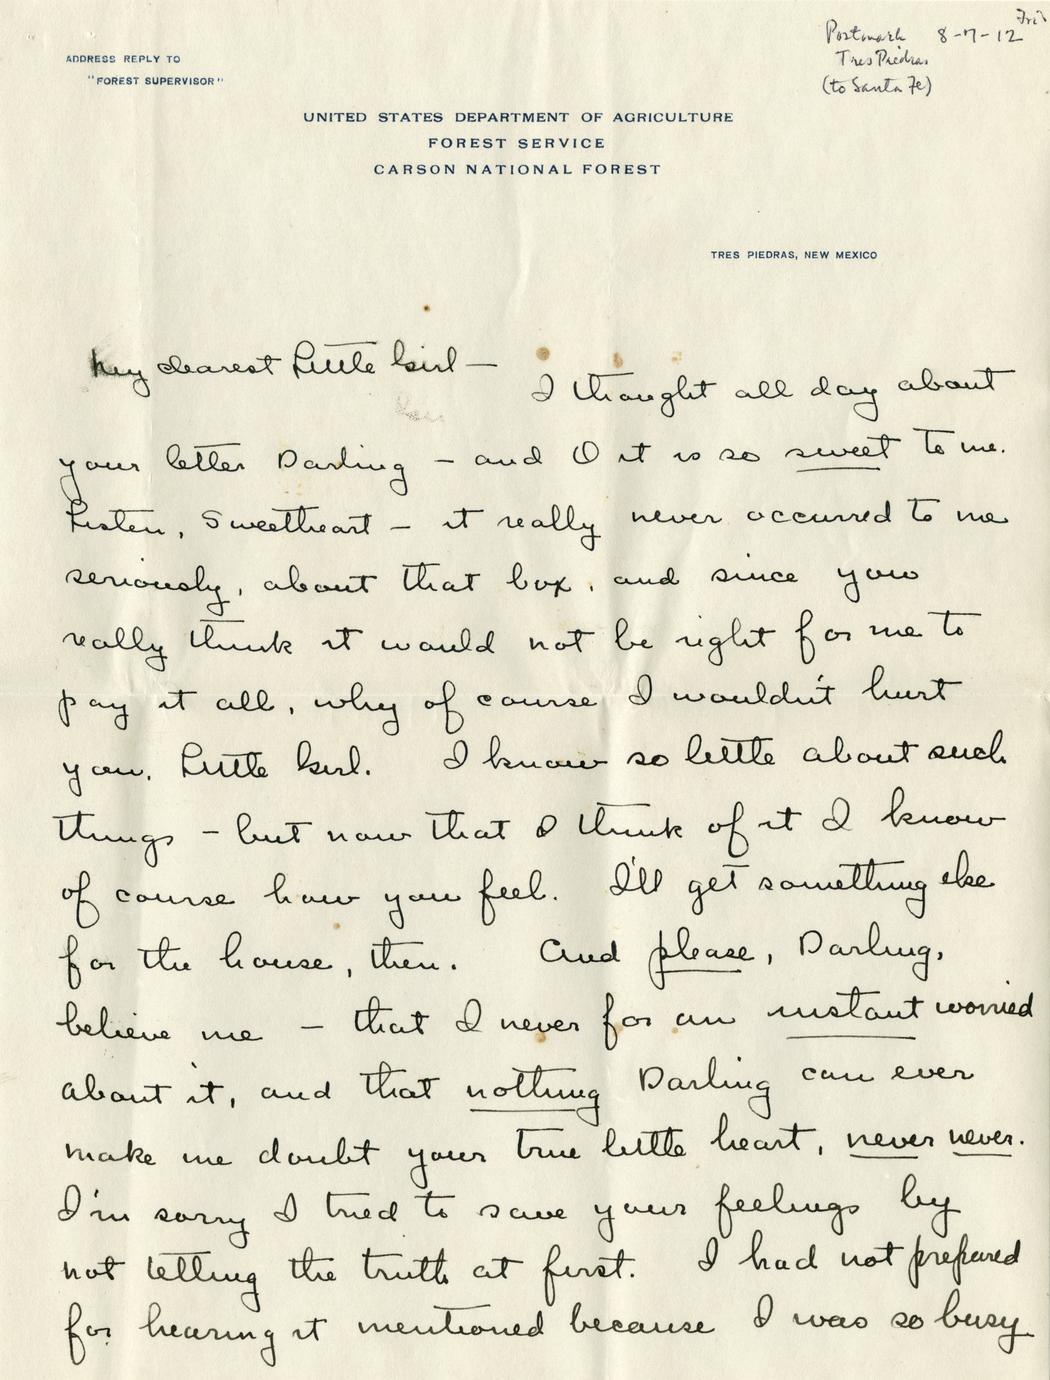 Fri
Postmark 8-7-12
Tres Piedras
(to Santa Fe)
ADDRESS REPLY TO
"FOREST SUPERVISOR"
UNITED STATES DEPARTMENT OF AGRICULTURE
FOREST SERVICE
CARSON NATIONAL FOREST
TRES PIEDRAS, NEW MEXICO
My dearest Little Girl —
I thought all day about
your letter Darling – and O it is so sweet to me.
Listen, Sweetheart – it really never occurred to me
seriously, about that box, and since you
really think it would not be right for me to
pay it all, why of course I wouldn't hurt
you, Little Girl. I know so little about such
things – but now that I think of it I know
of course how you feel. I'll get something else
for the house, then. And please, Darling,
believe me – that I never for an instant worried
about it, and that nothing Darling can ever
make me doubt your true little heart, never never.
I'm sorry I tried to save your feelings by
not telling the truth at first. I had not prepared
for hearing it mentioned because I was so busy